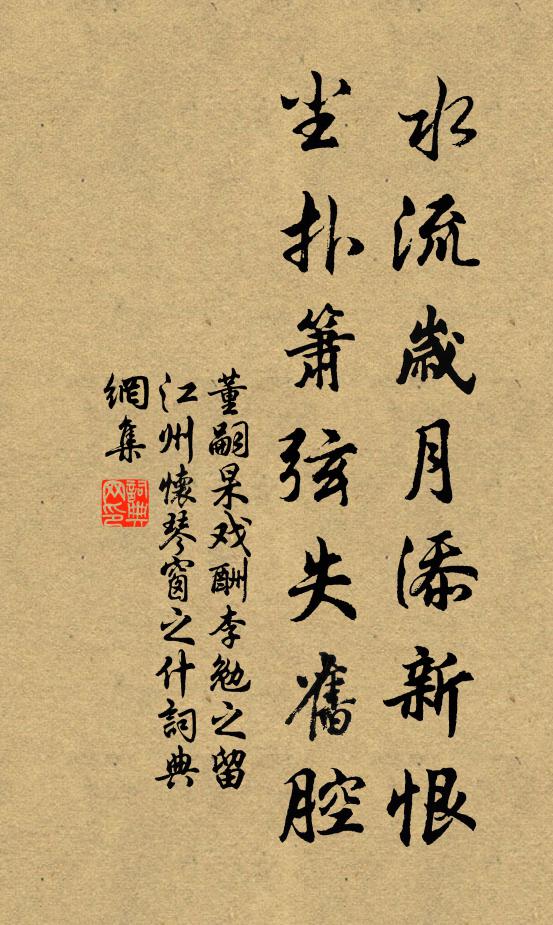 水流歲月添新恨
尘扑箫弦失舊腔
董嗣杲戏酬李勉之留
江州懷琴窗之什詞典
網集
詞典
网印